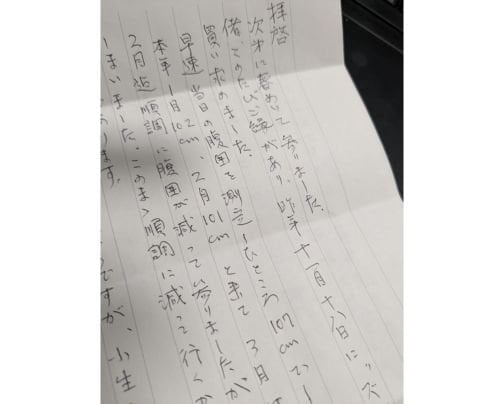 拝啓
次第に春めいて参りました。
備、このたびご縁があり、昨年十一月十八日に、ズ
買い求めました。
早速当日の腹囲を測定したところ107cmでし
本年1月102cm、2月101cmと来て3月
2月迄順調に腹囲が減って参りましたが
しまいました。このまゝ順調に減って行くか
あります。
ですが、小生